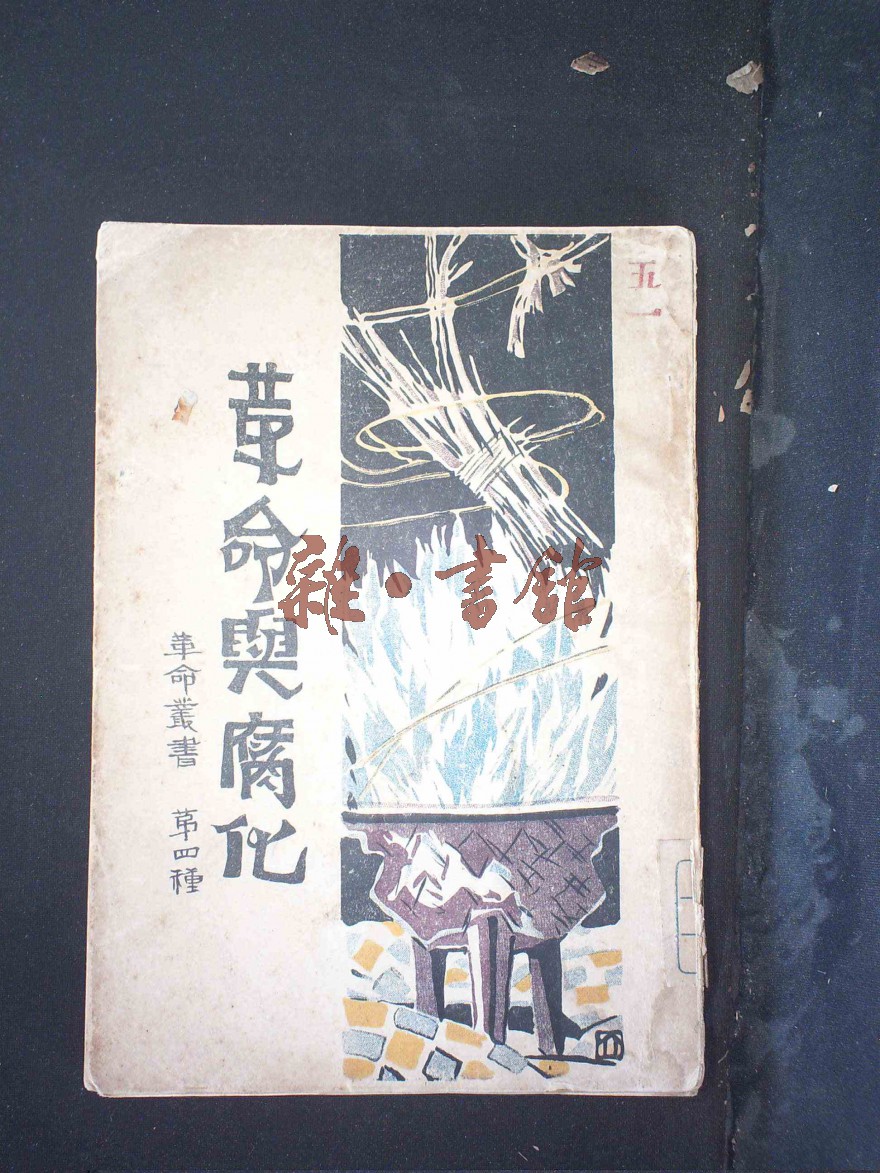 五一
革命與腐化
革命叢書 第四種
雜·書館